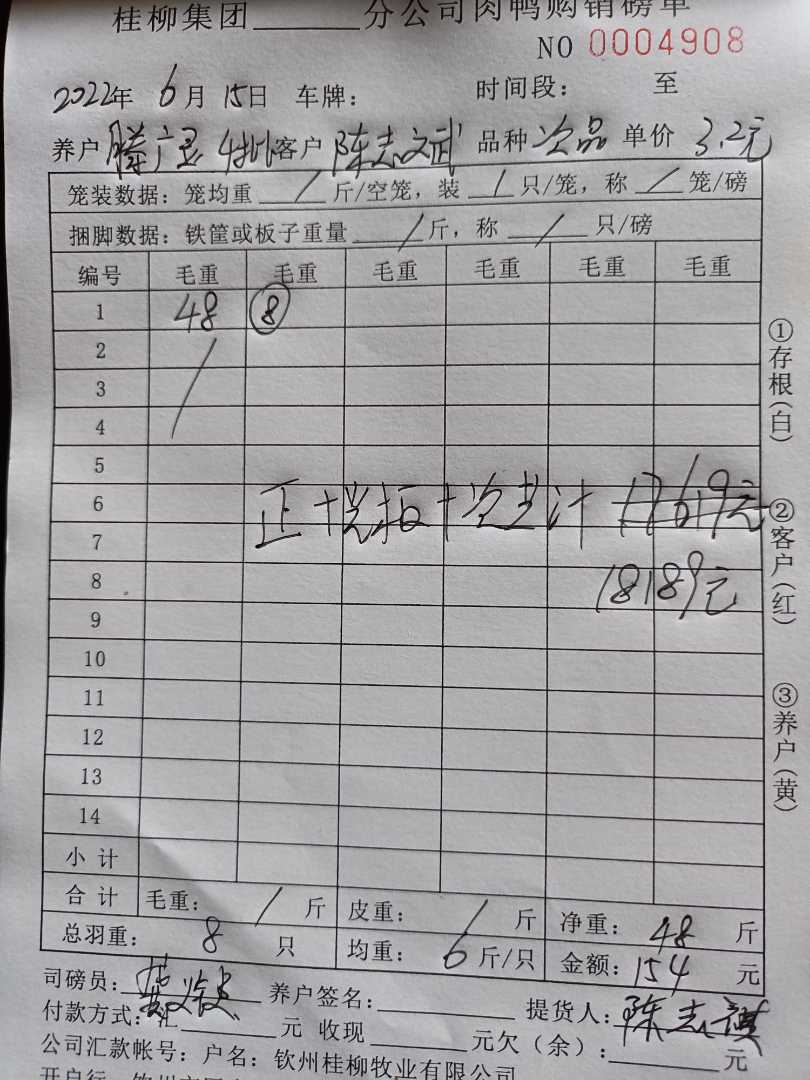 桂柳集团______分公司肉鸭购销磅单
NO 0004908
2022年 6月 15日 车牌： 时间段： 至
养户 4批 客户 陈志武 品种 次品 单价 3.2元
笼装数据：笼均重 / 斤/空笼，装 / 只/笼，称 / 笼/磅
捆脚数据：铁筐或板子重量 / 斤，称 / 只/磅
编号 毛重 毛重 毛重 毛重 毛重 毛重
1 48 ⑧
2 /
3
4
5
6
正十 板十次 计 17619元
7
8 18189元
9
10
11
12
13
14
小计
合计 毛重： / 斤 皮重： / 斤 净重：48斤
总羽重：8只 均重：6斤/只 金额：154元
司磅员： 养户签名： 提货人：陈志
付款方式：汇______元 收现______元欠（余）：______元
公司汇款帐号：户名：钦州桂柳牧业有限公司
开户行
①存根（白）
②客户（红）
③养户（黄）